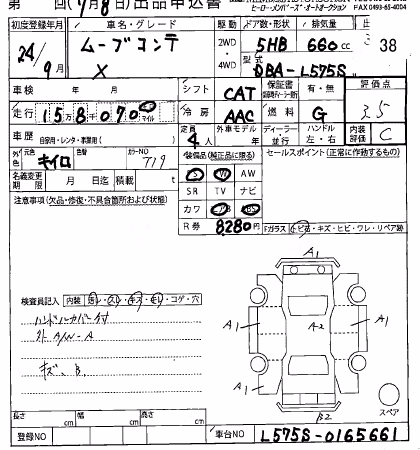 第 回(9月8日)出品申込書
ヒーロー・メンバーズ・オートオークション FAX 0493-65-4004
初度登録年月 車名・グレード 駆動 ドア数・形状 排気量
24年 9月 ムーブコンテ X 2WD・4WD 5HB 660cc 38
型式 DBA-L575S
車検 年 月 シフト CAT 保証書 有・無 評価点 3.5
走行 158070 マイル 冷房 AAC 燃料 G 内装評価 C
車歴 自家用・レンタ・事業用( ) 定員 4人 外車モデル年 ディーラー・並行 ハンドル 左・右
外色 元色 キイロ 色替 カラーNO T19
装備品(純正品に限る) セールスポイント(正常に作動するもの)
名義変更期限 月 日迄 積載 t
AW
SR TV ナビ
カワ
R券 8280円
注意事項(欠品・修復・不具合箇所および状態)
Fガラス(トビ石・キズ・ヒビ・ワレ・リペア跡)
検査員記入 内装 コゲ・穴
ハンドルカバー付
外 A/W-A
キズ、B
A1
A1 A2 A1
A1 A1
B2
スペア
長さ cm 幅 cm 高さ cm
登録NO 車台NO L575S-0165661